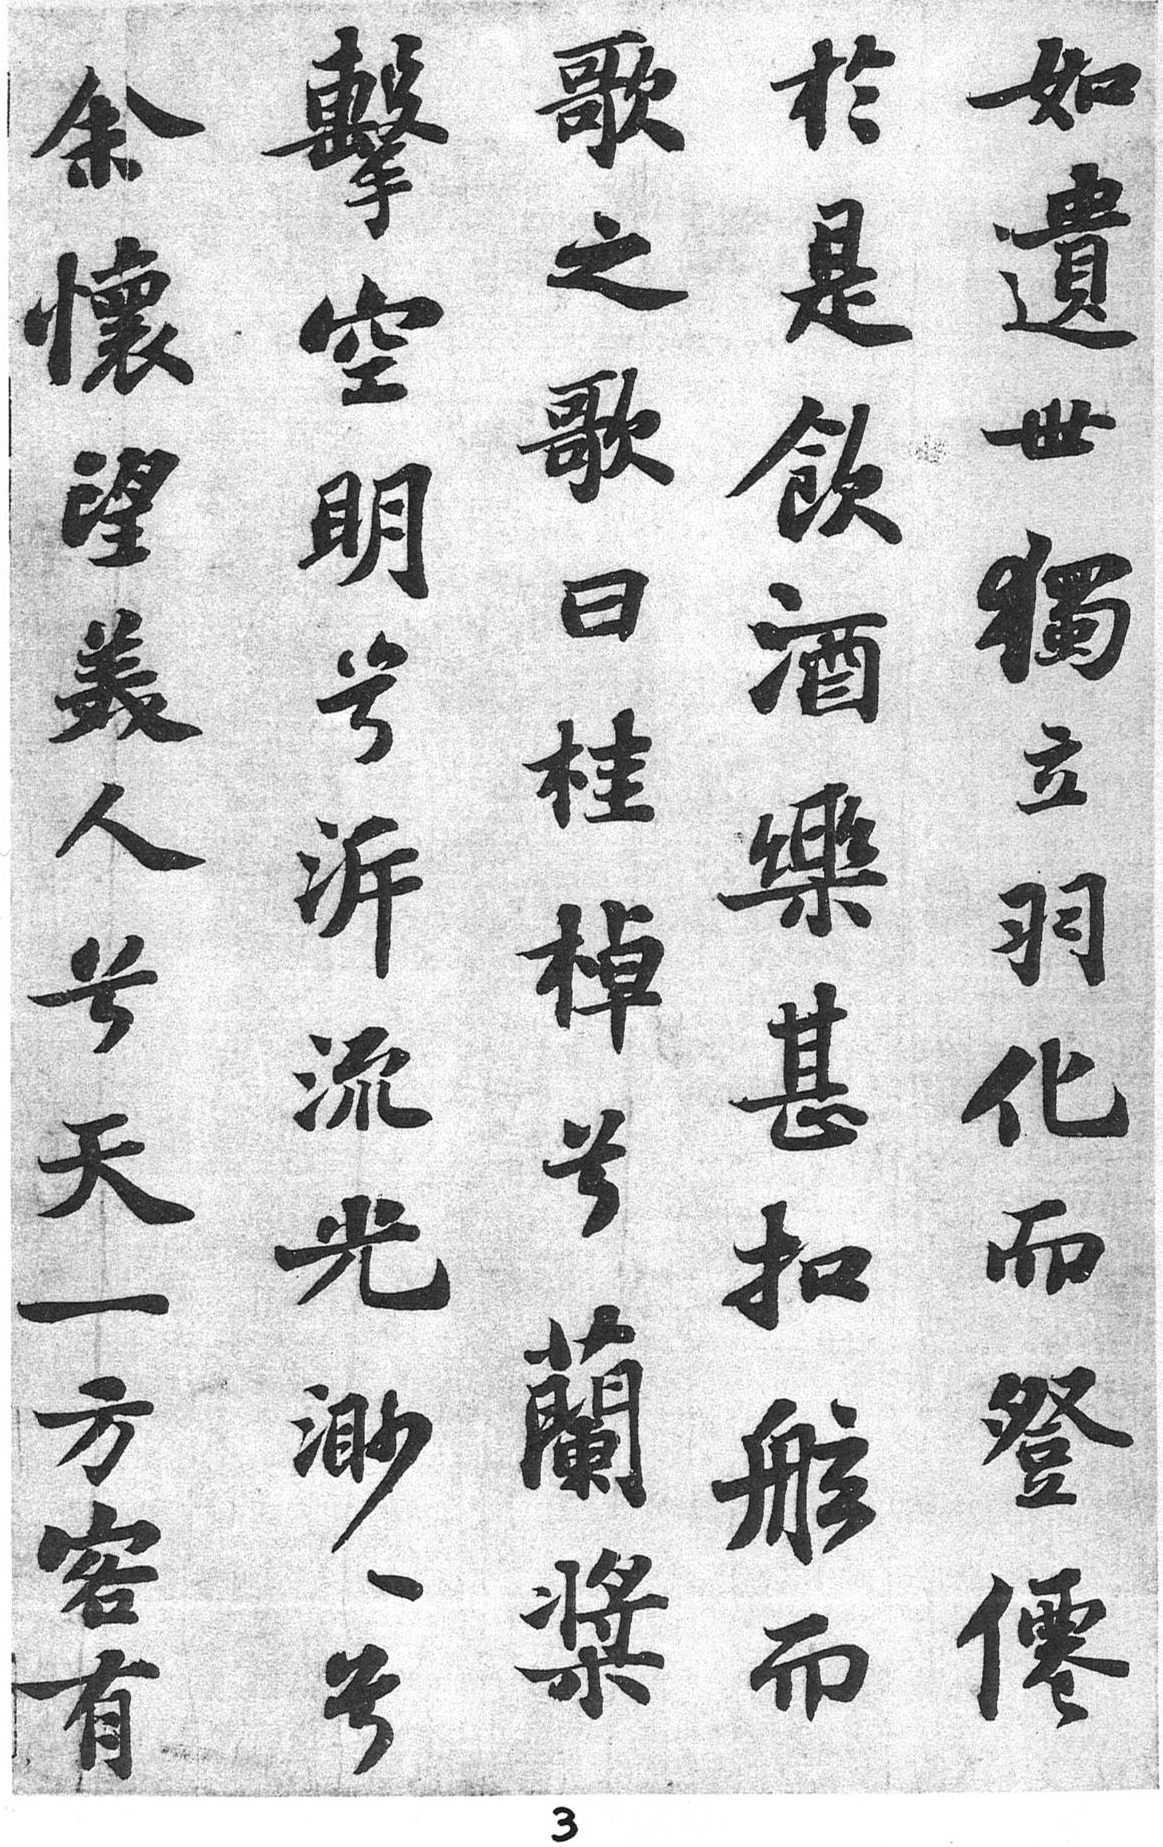 如遺世獨立羽化而登僊
於是飲酒樂甚扣舷而
歌之歌曰桂棹兮蘭槳
擊空明兮泝流光渺〻兮
余懷望美人兮天一方客有
3